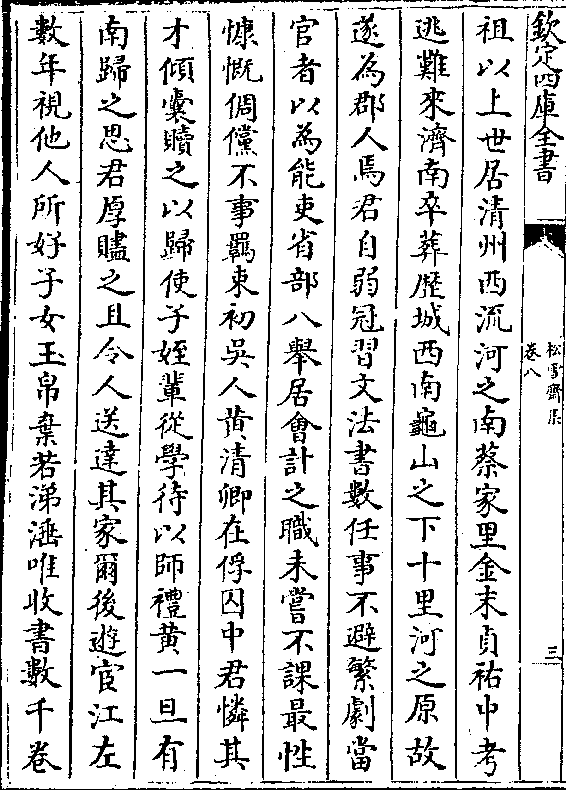 欽定四庫全書
松雪齋集
卷八
三
祖以上世居清州西流河之南蔡家里金末貞祐中考
逃難來濟南卒葬歴城西南龜山之下十里河之原故
遂為郡人焉君自弱冠習文法書數任事不避繁劇當
官者以為能吏省部八舉居會計之職未嘗不課最性
慷慨倜儻不事羈束初吳人黄清卿在俘囚中君憐其
才傾囊贖之以歸使子姪輩從學待以師禮黄一旦有
南歸之思君厚贐之且令人送達其家爾後遊宦江左
數年視他人所好子女玉帛棄若涕洟唯收書數千卷